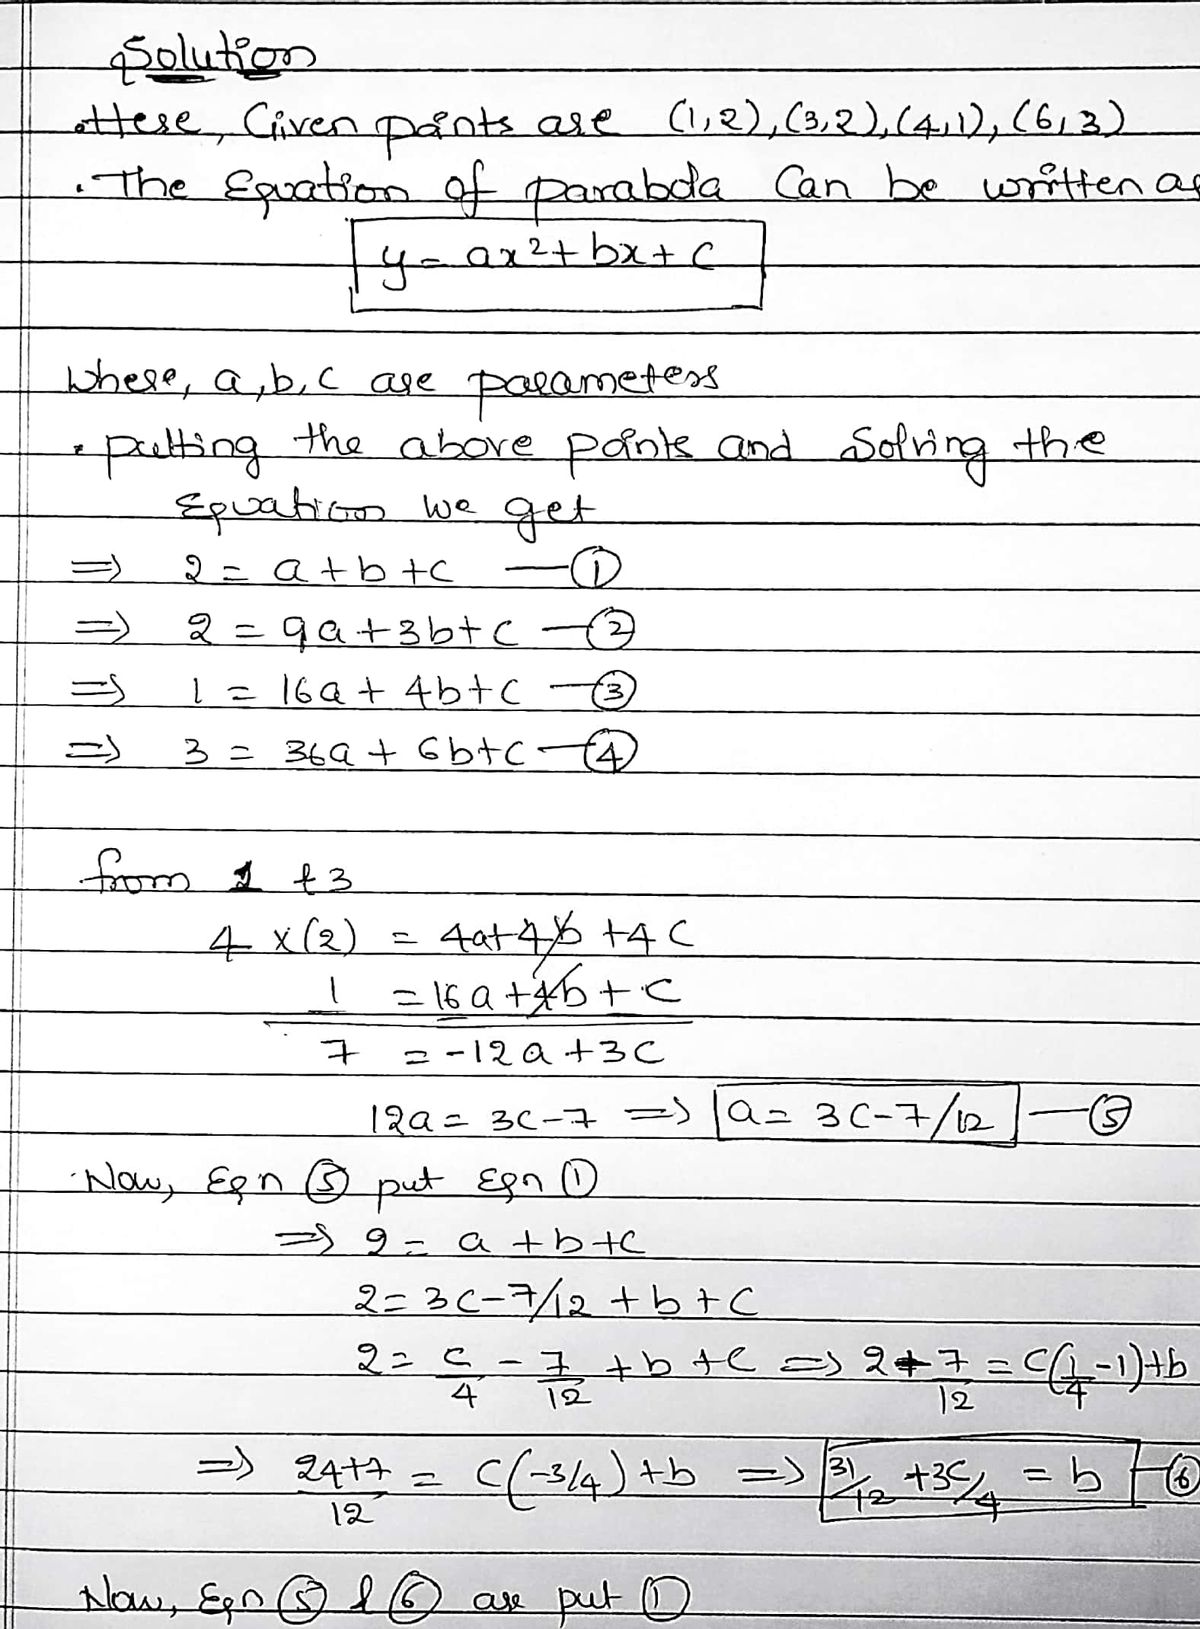 Solution
Here, Given points are (1,2),(3,2),(4,1),(6,3)
. The Equation of parabola Can be written as
y = ax² + bx + c
Where, a,b,c are parameters
. putting the above points and Solving the
Equation we get
⇒ 2 = a + b + c — ①
⇒ 2 = 9a + 3b + c — ②
⇒ 1 = 16a + 4b + c — ③
⇒ 3 = 36a + 6b + c — ④
from 1 & 3
4 x (2) = 4a + 4b + 4c
1 = 16a + 4b + c
7 = -12a + 3c
12a = 3c - 7 ⇒ a = 3c - 7/12 — ⑤
Now, Eqn ⑤ put Eqn ①
⇒ 2 = a + b + c
2 = 3c - 7/12 + b + c
2 = c/4 - 7/12 + b + c ⇒ 2 + 7/12 = c(1/4 - 1) + b
⇒ 24+7/12 = c(-3/4) + b ⇒ 31/12 + 3c/4 = b — ⑥
Now, Eqn ⑤ & ⑥ are put ①